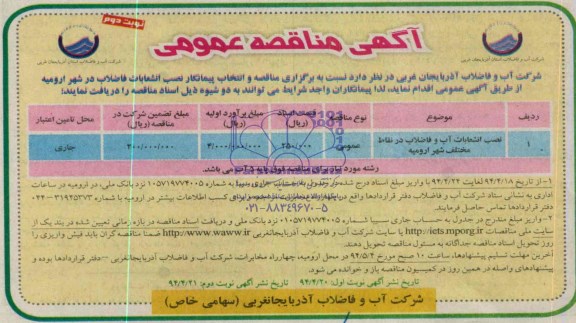 نوبت دوم
آگهی مناقصه عمومی
شرکت آب و فاضلاب آذربایجان غربی در نظر دارد نسبت به برگزاری مناقصه و انتخاب پیمانکار نصب انشعابات فاضلاب در شهر ارومیه
از طریق آگهی عمومی اقدام نماید، لذا پیمانکاران واجد شرایط می توانند به دو شیوه ذیل اسناد مناقصه را دریافت نمایند:
ردیف موضوع نوع مناقصه قیمت اسناد (ریال) مبلغ برآورد اولیه (ریال) مبلغ تضمین شرکت در مناقصه (ریال) محل تامین اعتبار
۱ نصب انشعابات آب و فاضلاب در نقاط مختلف شهر ارومیه عمومی ۲۵۰/۰۰۰ ۴/۰۰۰/۰۰۰/۰۰۰ ۲۰۰/۰۰۰/۰۰۰ جاری
رشته مورد نیاز برای مناقصه آب می باشد.
۱-از تاریخ ۹۴/۲/۱۸ لغایت ۹۴/۲/۲۴ با واریز مبلغ اسناد درج شده در جدول به حساب جاری سیبا به شماره ۰۱۰۵۷۱۹۷۷۴۰۰۵ نزد بانک ملی، در ارومیه در ساعات
اداری به نشانی ستاد شرکت آب و فاضلاب دفتر قراردادها کسب اطلاعات بیشتر در ارومیه با شماره ۳۱۹۴۵۳۷۳-۰۴۴
دفتر قراردادها تماس حاصل فرمایند.
۰۲۱-۸۸۳۴۹۶۷۰-۵
۲-واریز مبلغ مندرج در جدول به حساب جاری سیبا شماره ۰۱۰۵۷۱۹۷۷۴۰۰۵ نزد بانک ملی و دریافت اسناد مناقصه در بازه زمانی تعیین شده در بند یک از
سایت ملی مناقصات http://iets.mporg.ir یا سایت شرکت آب و فاضلاب آذربایجانغربی http://www.waww.ir ضمنا مناقصه گران باید فیش واریزی را
روز تحویل اسناد مناقصه جداگانه به مسئول مناقصه تحویل دهند.
آخرین مهلت تسلیم پیشنهادها، ساعت ۱۰ صبح مورخ ۹۴/۵/۴ در محل ارومیه، چهارراه مخابرات، شرکت آب و فاضلاب آذربایجانغربی --دفتر قراردادها بوده و
پیشنهادهای واصله در همین روز در کمیسیون مناقصه باز و خوانده می شود.
تاریخ نشر آگهی نوبت اول: ۹۴/۴/۲۰ تاریخ نشر آگهی نوبت دوم: ۹۴/۴/۲۱
شرکت آب و فاضلاب آذربایجانغربی (سهامی خاص)